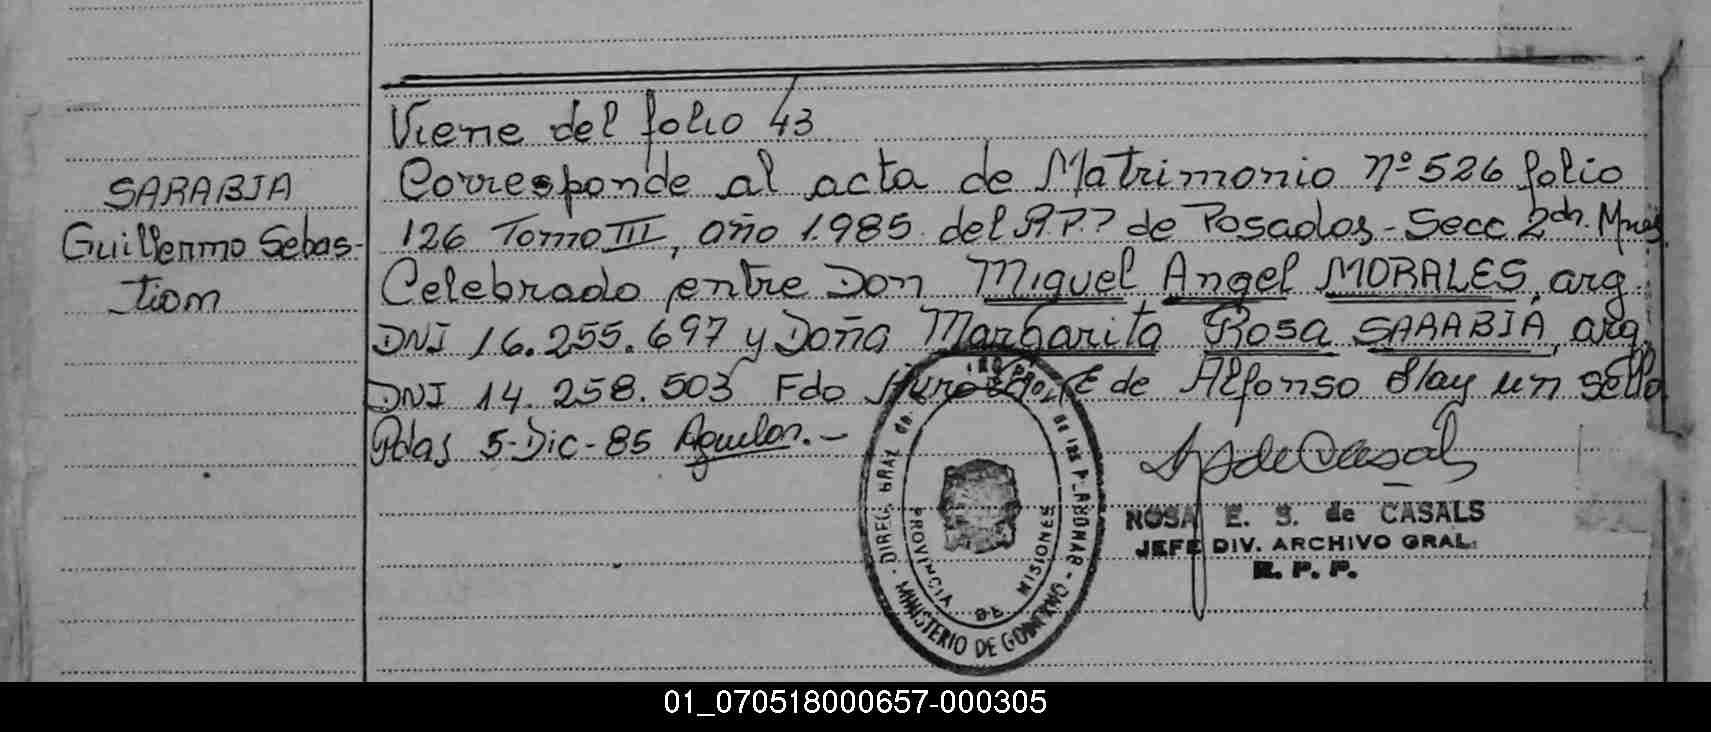 Viene del folio 43
SARABIA
Guillermo Sebas-
tian
Corresponde al acta de Matrimonio nº 526 folio
126 Tomo III, año 1.985 del R.P.P de Posadas - Secc 2da. Mnes.
Celebrado entre Don Miguel Angel MORALES, arg.
DNI 16.255.697 y Doña Margarita Rosa SARABIA, arg.
DNI 14.258.503 Fdo E de Alfonso Hay un sello
Pdas 5-Dic-85 .-
de Casals
ROSA E. S. de CASALS
JEFE DIV. ARCHIVO GRAL.
R. P. P.
DIREC. GRAL de de las PERSONAS
PROVINCIA DE MISIONES
MINISTERIO DE GOBIERNO
01_070518000657-000305